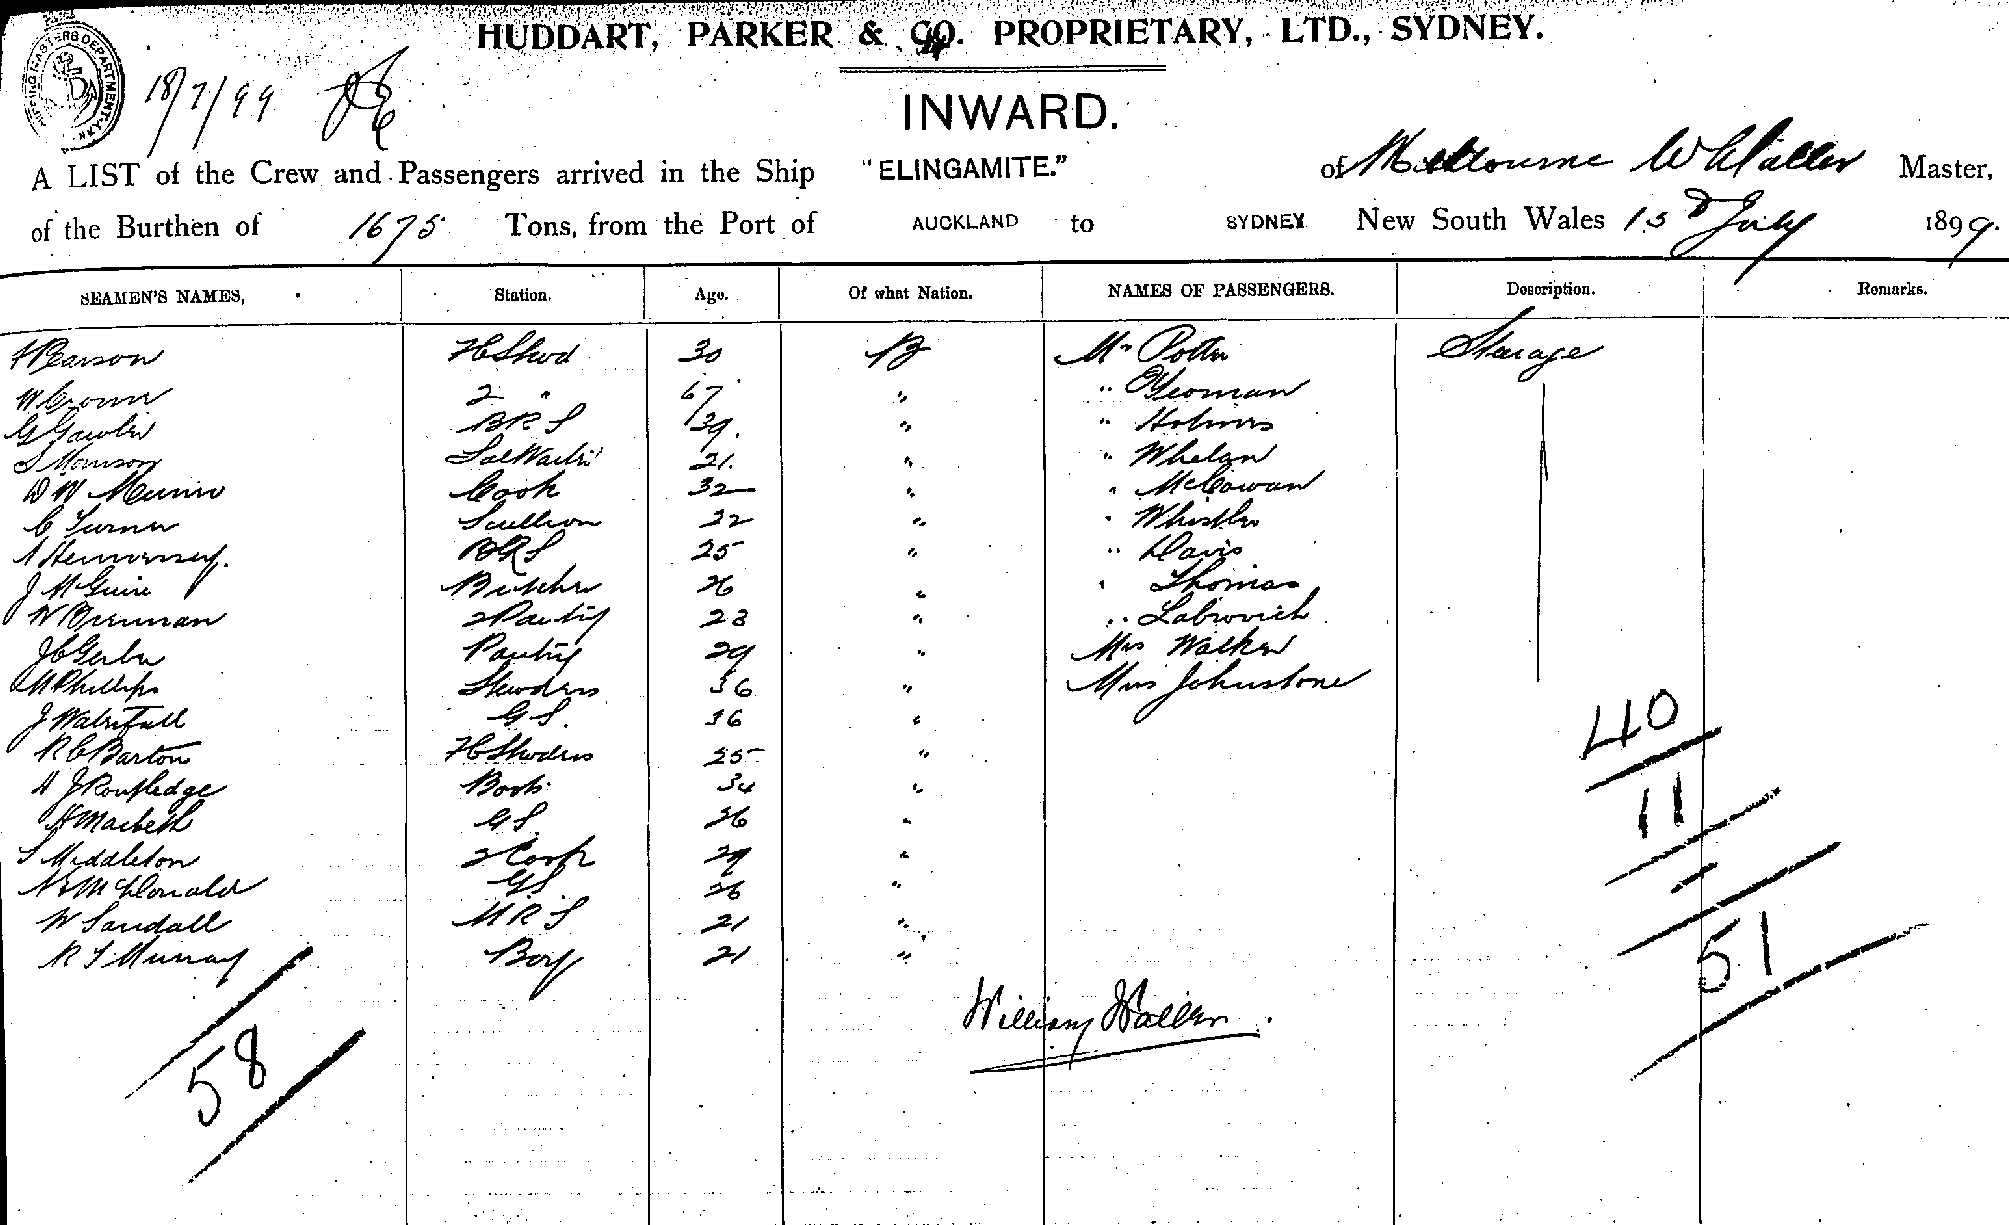 HUDDART, PARKER & CO. PROPRIETARY, LTD., SYDNEY.
18/7/99
INWARD.
A LIST of the Crew and Passengers arrived in the Ship "ELINGAMITE." of Melbourne W Waller Master,
of the Burthen of 1675 Tons, from the Port of AUCKLAND to SYDNEY New South Wales 15 July 1899.
SEAMEN'S NAMES, Station. Age. Of what Nation. NAMES OF PASSENGERS. Description. Remarks.
30 B Mr Potter Steerage
2 " 67 " " Yeoman
G Gawler BRS 39. " " Holmes
S Morrison 21. " " Whelan
D W Munro Cook 32 " " McCowan
C Turner Scullion 22 " " Whistler
BRS 25 " " Davis
J McGuire Butcher 26 " " Thomas
W Brennan 2 Pantry 23 " "
Pantry 29 " Mrs Walker
M Phillips Stwdrss 36 " Miss Johnstone
J Waterfall G S. 36 "
R C Barton Stwdrss 25 "
A J Routledge Boots 34 "
H Macbeth G S. 26 "
S Middleton 2 Cook 29 "
McDonald GS 26 "
W Sandall M R S 21 "
R S Murray Boy 21 "
40
11
51
William Waller.
58